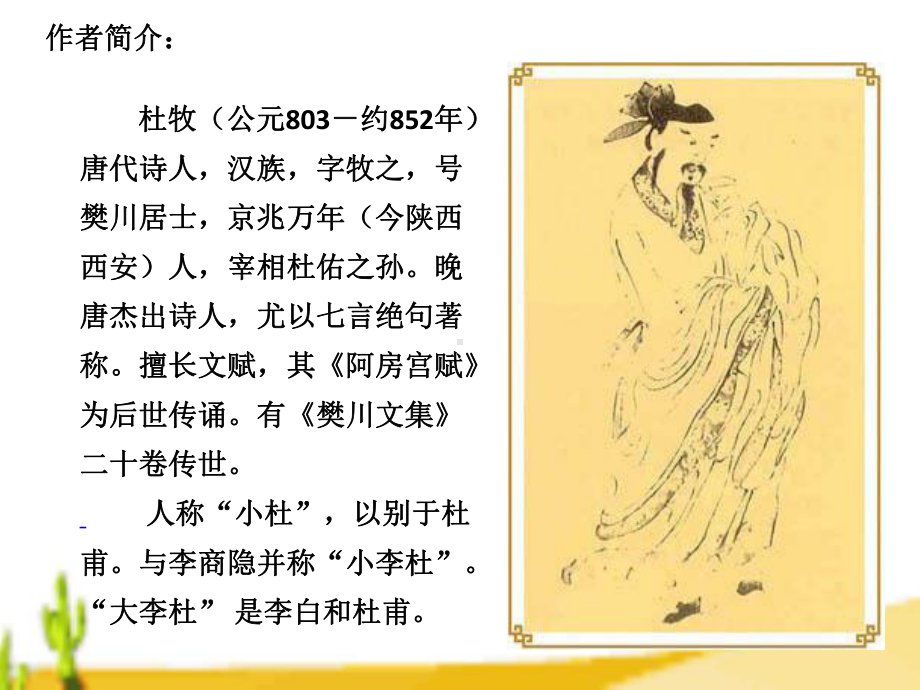 作者简介：
杜牧（公元803－约852年）
唐代诗人，汉族，字牧之，号
樊川居士，京兆万年（今陕西
西安）人，宰相杜佑之孙。晚
唐杰出诗人，尤以七言绝句著
称。擅长文赋，其《阿房宫赋》
为后世传诵。有《樊川文集》
二十卷传世。
人称“小杜”，以别于杜
甫。与李商隐并称“小李杜”。
“大李杜” 是李白和杜甫。